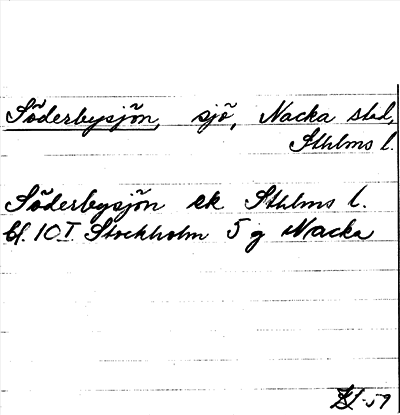 Söderbysjön, sjö, Nacka stad,
Sthlms l.
Söderbysjön ek Sthlms l.
bl. 10T Stockholm 5 g Nacka
-59